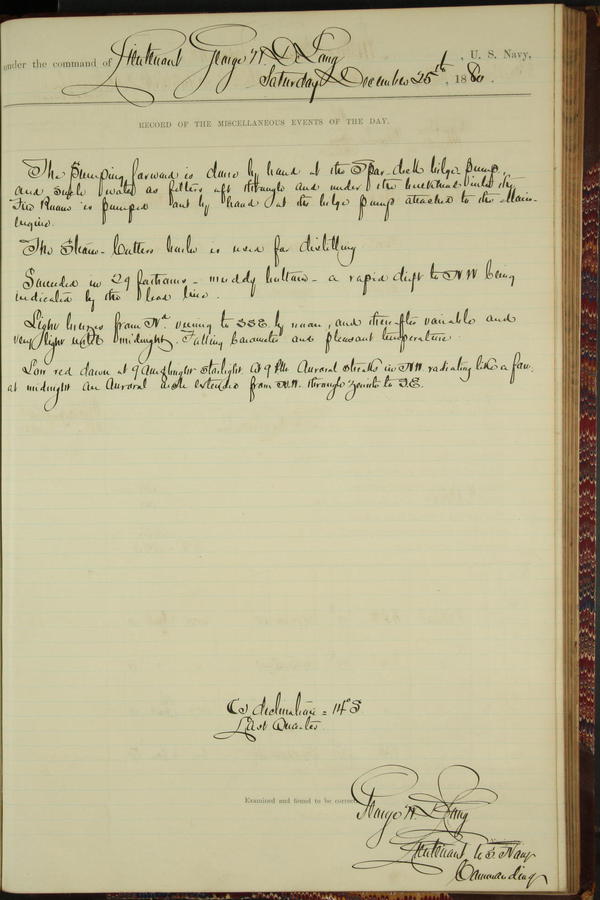 under the command of Lieutenant George W. De Long, U. S. Navy,
Saturday December 25th, 1880.
RECORD OF THE MISCELLANEOUS EVENTS OF THE DAY.
The Pumping forward is done by hand at the Spar-deck bilge pump,
and such water as filters aft through and under the bulkhead into the
Fire Room is pumped out by hand at the bilge pump attached to the Main-
engine.
The Steam-Cutters boiler is used for distilling.
Sounded in 29 fathoms - muddy bottom - a rapid drift to NW being
indicated by the lead line.
Light breezes from Nd. veering to SSE by noon, and thereafter variable and
very light until midnight. Falling barometer and pleasant temperature.
Low red dawn at 9 AM, bright starlight. At 9 PM Auroral streaks in NW. radiating like a fan.
at midnight an Auroral arch extended from N.W. through zenith to S.E.
declination = 14° S
Last Quarter.
Examined and found to be correct.
George W. De Long
Lieutenant U.S. Navy
Commanding